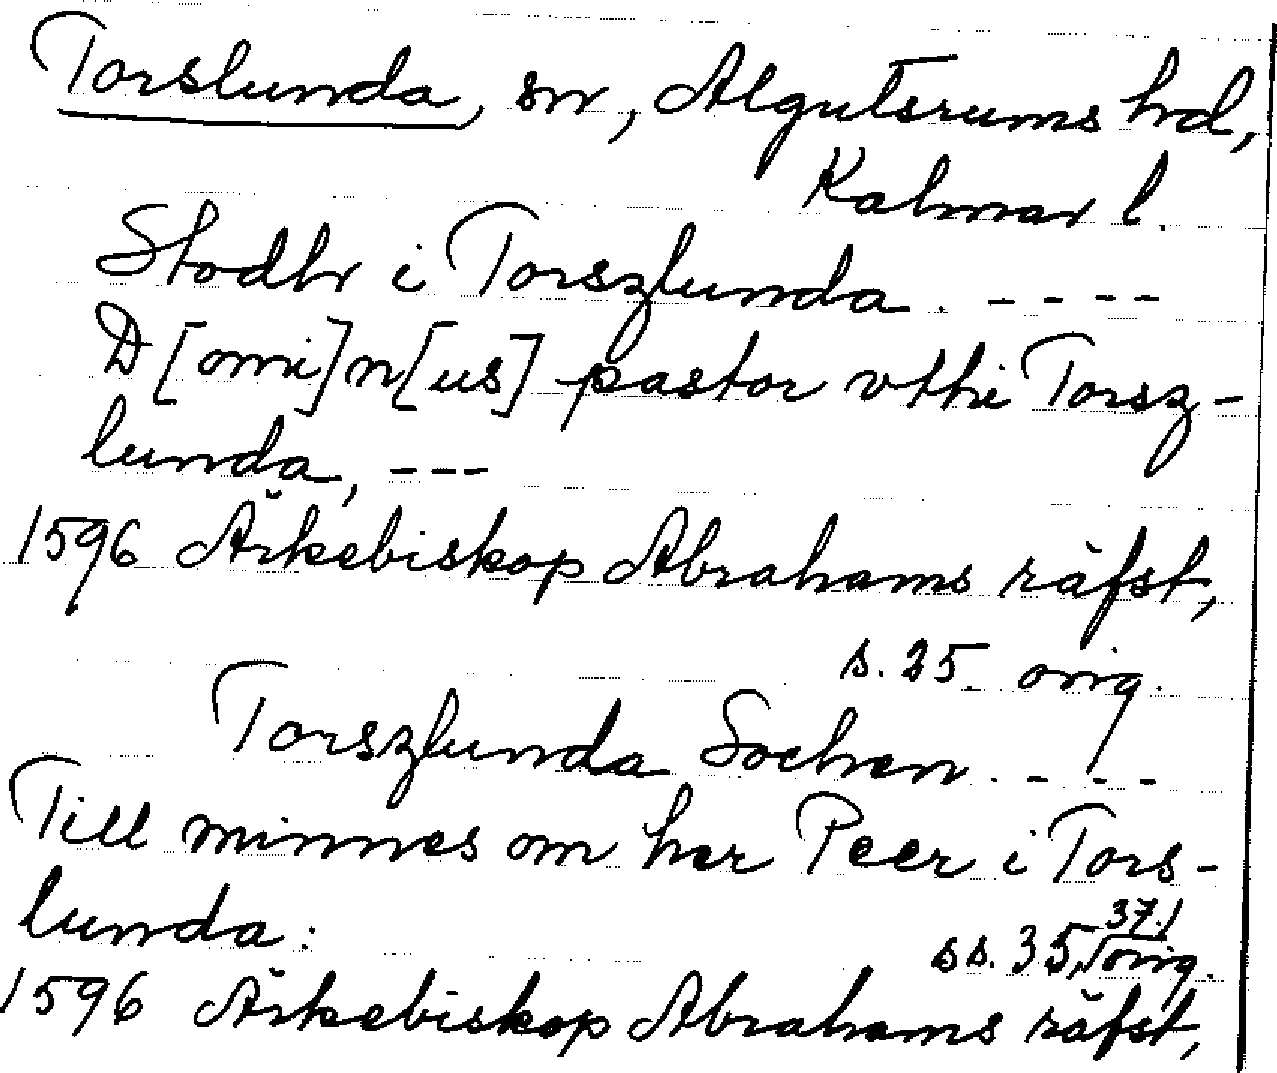 Torslunda, sn, Algutsrums hd,
Kalmar l.
Stodhr i Torszlunda. - - - -
D[omi]n[us] pastor vthi Torsz-
lunda, - - -
1596 Ärkebiskop Abrahams räfst,
s. 25 orig.
Torszlunda Sochen. - - -
Till minnes om her Peer i Tors-
lunda:
ss. 35, 37, orig.
1596 Ärkebiskop Abrahams räfst,